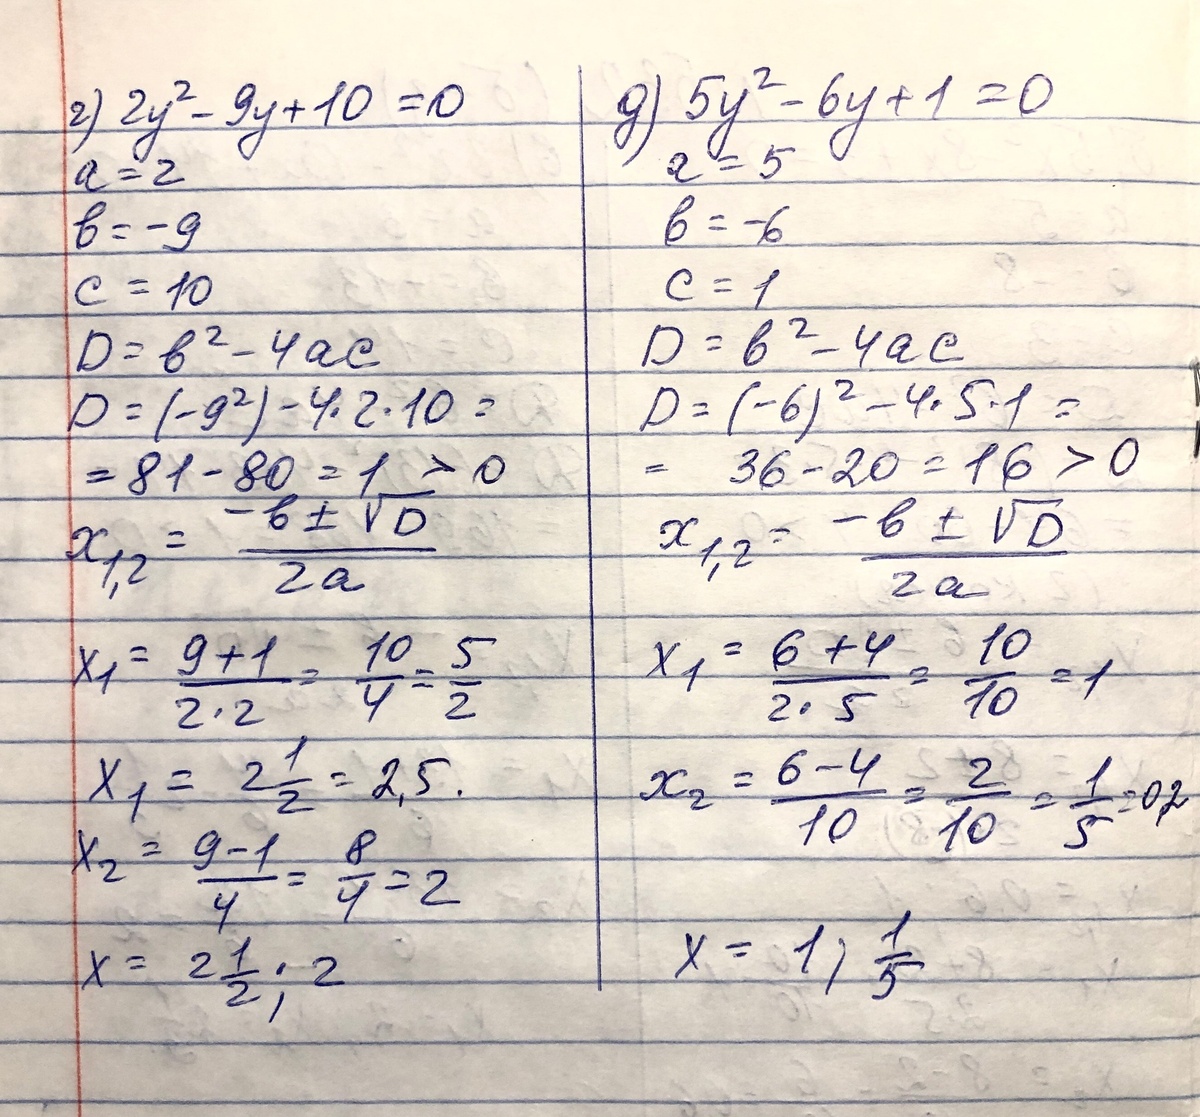 г) 2y² - 9y + 10 = 0
a = 2
в = -9
c = 10
D = в² - 4ac
D = (-9²) - 4·2·10 =
= 81 - 80 = 1 > 0
x₁,₂ = (-в ± √D)/(2a)
x₁ = (9+1)/(2·2) = 10/4 = 5/2
x₁ = 2 1/2 = 2,5.
x₂ = (9-1)/4 = 8/4 = 2
x = 2 1/2; 2
д) 5y² - 6y + 1 = 0
a = 5
в = -6
c = 1
D = в² - 4ac
D = (-6)² - 4·5·1 =
= 36 - 20 = 16 > 0
x₁,₂ = (-в ± √D)/(2a)
x₁ = (6+4)/(2·5) = 10/10 = 1
x₂ = (6-4)/10 = 2/10 = 1/5 = 0,2
x = 1; 1/5